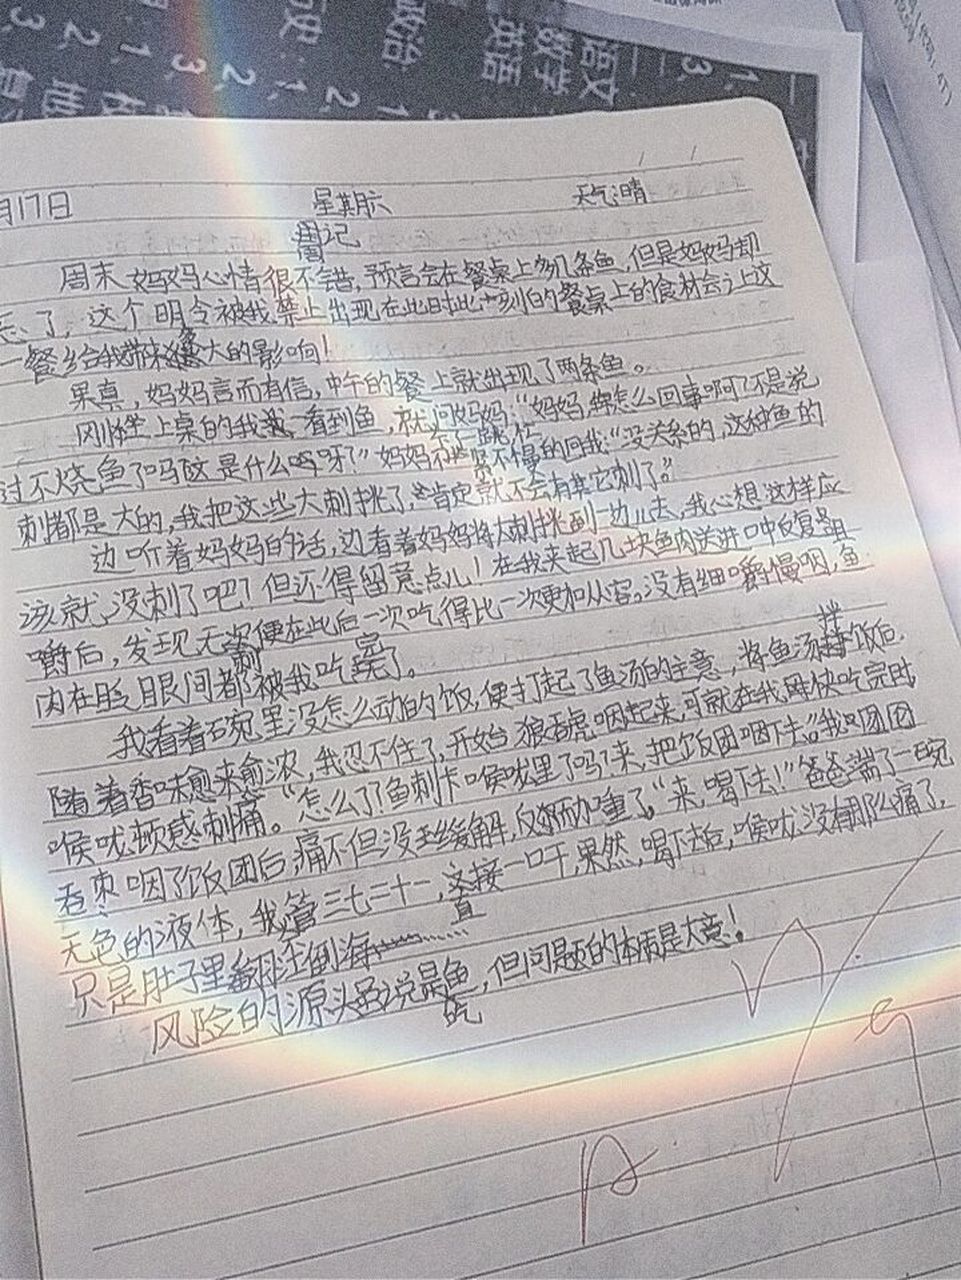 语文
数学
英语
政治
月17日 星期六 天气晴
周记
周末妈妈心情很不错,预言会在餐桌上多几条鱼,但是妈妈却
忘了,这个明令被我禁止出现在此时此刻的餐桌上的食材会让这
一餐给我带来多大的影响!
果真,妈妈言而有信,中午的餐上就出现了两条鱼。
刚坐上桌的我一看到鱼,就问妈妈:“妈妈,你怎么回事啊?不是说
过不烧鱼了吗?这是什么鸣呀?”妈妈不慌不忙的回我:“没关系的,这种鱼的
刺都是大的,我把这些大刺挑了,肯定就不会有其它刺了。”
边听着妈妈的话,边看着妈妈将大刺挑到一边儿去,我心想这样应
该就没刺了吧?但还得留意点儿!在我夹起几块鱼肉送进口中反复咀
嚼后,发现无刺便在此后一次吃得比一次更加从容。没有细嚼慢咽,鱼
肉在眨眼间都被我吃完了。
我看着碗里没怎么动的饭,便打起了鱼汤的主意,将鱼汤拌饭后,
随着香味愈来愈浓,我忍不住了,开始狼吞虎咽起来,可就在我要快吃完时
喉咙顿感刺痛。“怎么了?鱼刺卡喉咙里了吗?来,把饭团咽下去。”我囫囵
吞枣咽了饭团后,痛不但没缓解,反而加重了。“来,喝下去!”爸爸端了一碗
无色的液体,我管三七二十一,直接一口干,果然,喝下去后,喉咙没有那么痛了,
只是肚子里翻江倒海……
风险的源头虽说是吃鱼,但问题的本质是大意!